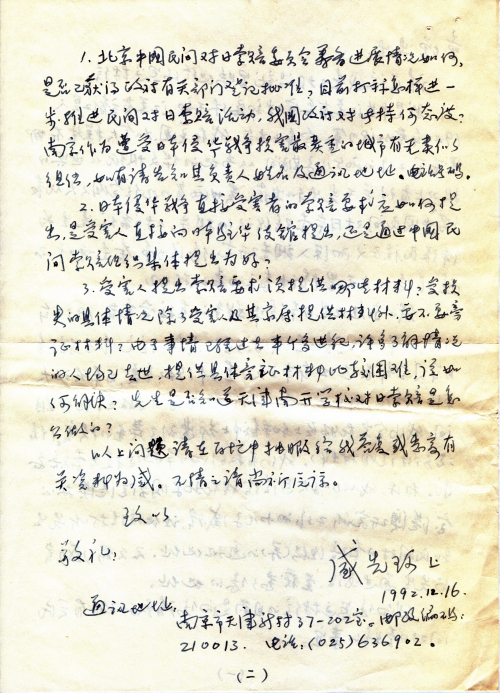 1. 北京中国民间对日索赔委员会筹备进展情况如何,
是否已获得政府有关部门登记批准,目前打标怎样进一
步推进民间对日索赔活动,我国政府对此持何态度?
南京作为遭受日军侵华战争损害最严重的城市有无类似
组织,如有请告知其负责人姓名及通讯地址。电话号码。
2. 日本侵华战争直接受害者的索赔要求应如何提
出,是受害人直接向日本驻华使馆提出,还是通过中国民
间索赔组织集体提出为好?
3. 受害人提出索赔要求该提供哪些材料?受损
失的具体情况除了受害人及其家属提供材料外,要不要旁
证材料?由于事情已经过去半个多世纪,许多了解情况
的人均已去世,提供具体旁证材料比较困难,该如
何解决?先生是否知道天津南开学校对日索赔是怎
么做的?
以上问题请在百忙中抽暇给我答复或寄有
关资料为感。不情之请尚祈应谅。
致以
敬礼!
盛先 上
1992.12.16.
通讯地址:
南京市天津新村37-202室。邮政编码:
210013. 电话:(025)636902.
(二)